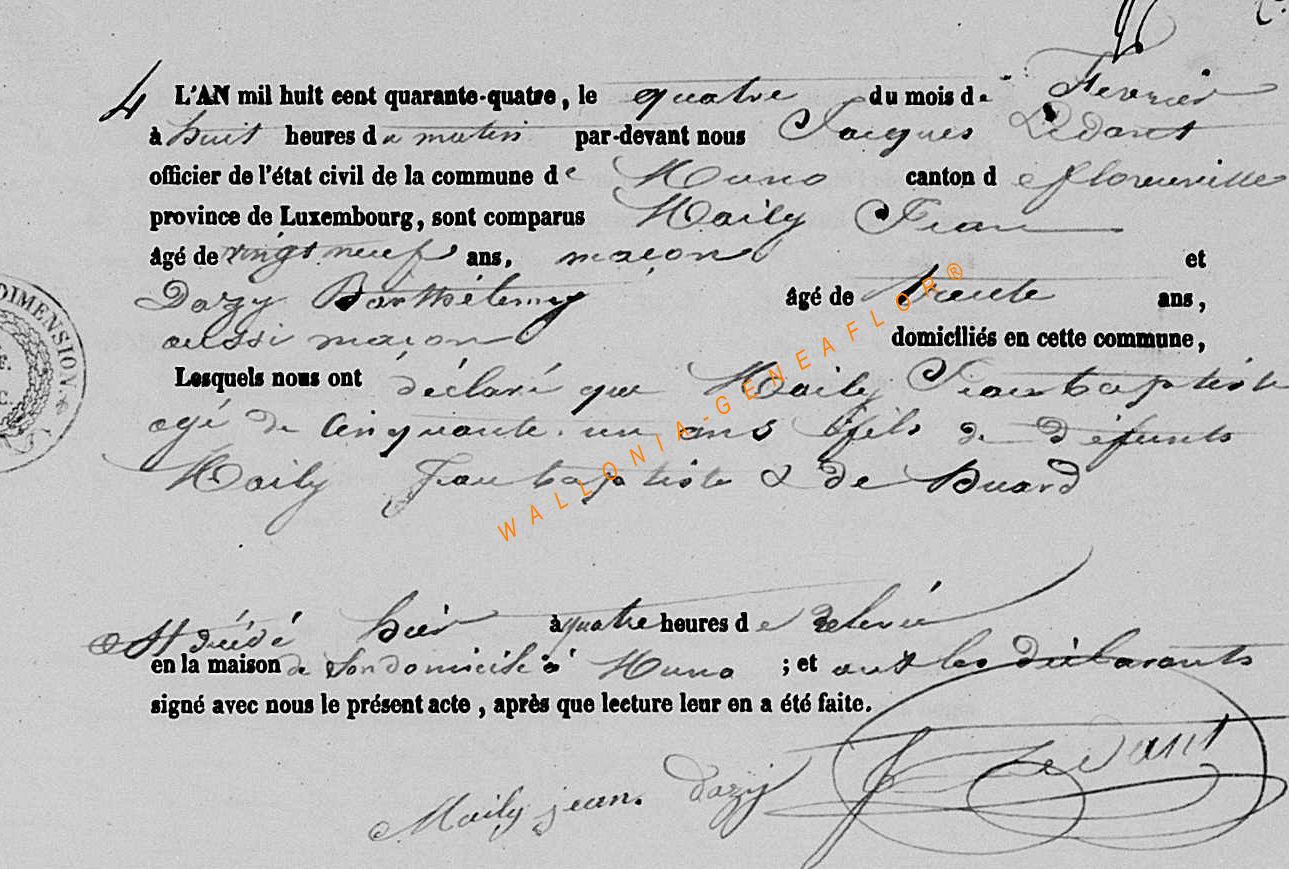 4 L'AN mil huit cent quarante-quatre, le quatre du mois de Fevrier
à huit heures du matin par-devant nous Jacques Ledant
officier de l'état civil de la commune de Muno canton d e florenville
province de Luxembourg, sont comparus Maily Jean
âgé de vingt neuf ans, maçon et
Dazy Barthélemy âgé de trente ans,
aussi maçon domiciliés en cette commune,
Lesquels nous ont déclaré que Maily Jean baptiste
agé de Cinquante-un ans fils de défunts
Maily Jean baptiste & de Buard
St décédé hier à quatre heures de relevée
en la maison de son domicile à Muno ; et ont les déclarants
signé avec nous le présent acte, après que lecture leur en a été faite.
Maily jean. dazy J Ledant
DIMENSION
WALLONIA-GENEAFLOR®